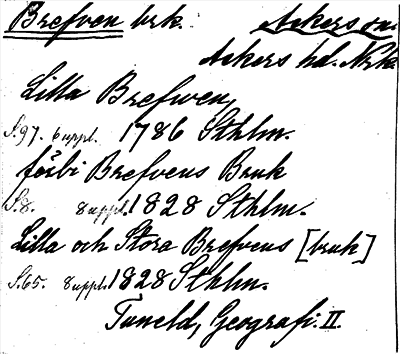 Brefven brk. Åkers sn.
Åkers hd. Nrk.
Lilla Brefwen,
S. 97. 6 uppl. 1786 Sthlm.
förbi Brefvens Bruk
S. 8. 8 uppl. 1828 Sthlm.
Lilla och Stora Brefvens [bruk]
S. 65. 8 uppl. 1828 Sthlm.
Tuneld, Geografi. II.